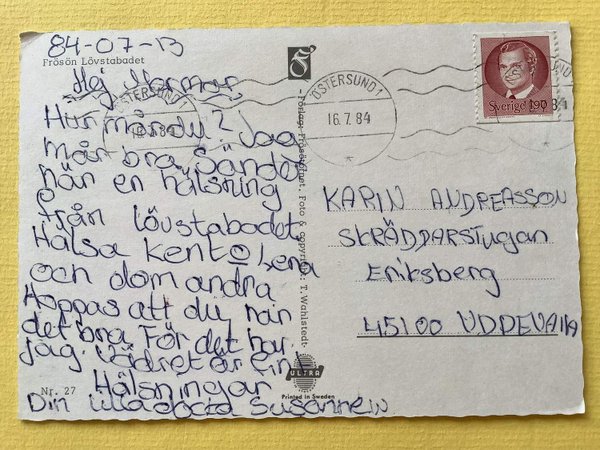 84-07-13
Frösön Lövstabadet
Hej Mormor,
Hur mår du? Jag
mår bra. Sänder
här en hälsning
från lövstabadet,
Hälsa Kent o Lena
och dom andra
Hoppas att du har
det bra För det har
jag. Vädret är fint
Hälsningar
Din lilla Susanne
Nr. 27
- Förlag: Frösötornet. Foto & copyright: T. Wahlstedt -
ULTRA
Printed in Sweden
ÖSTERSUND 1
ÖSTERSUND 1
16.7.84
Sverige 190
84
KARIN ANDREASSON
SKRÄDDARSTUGAN
Eriksberg
45100 UDDEVALLA